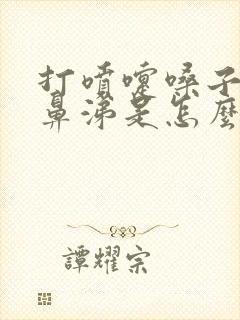 打噴嚏嗓子
鼻涕是怎麼
譚耀宗